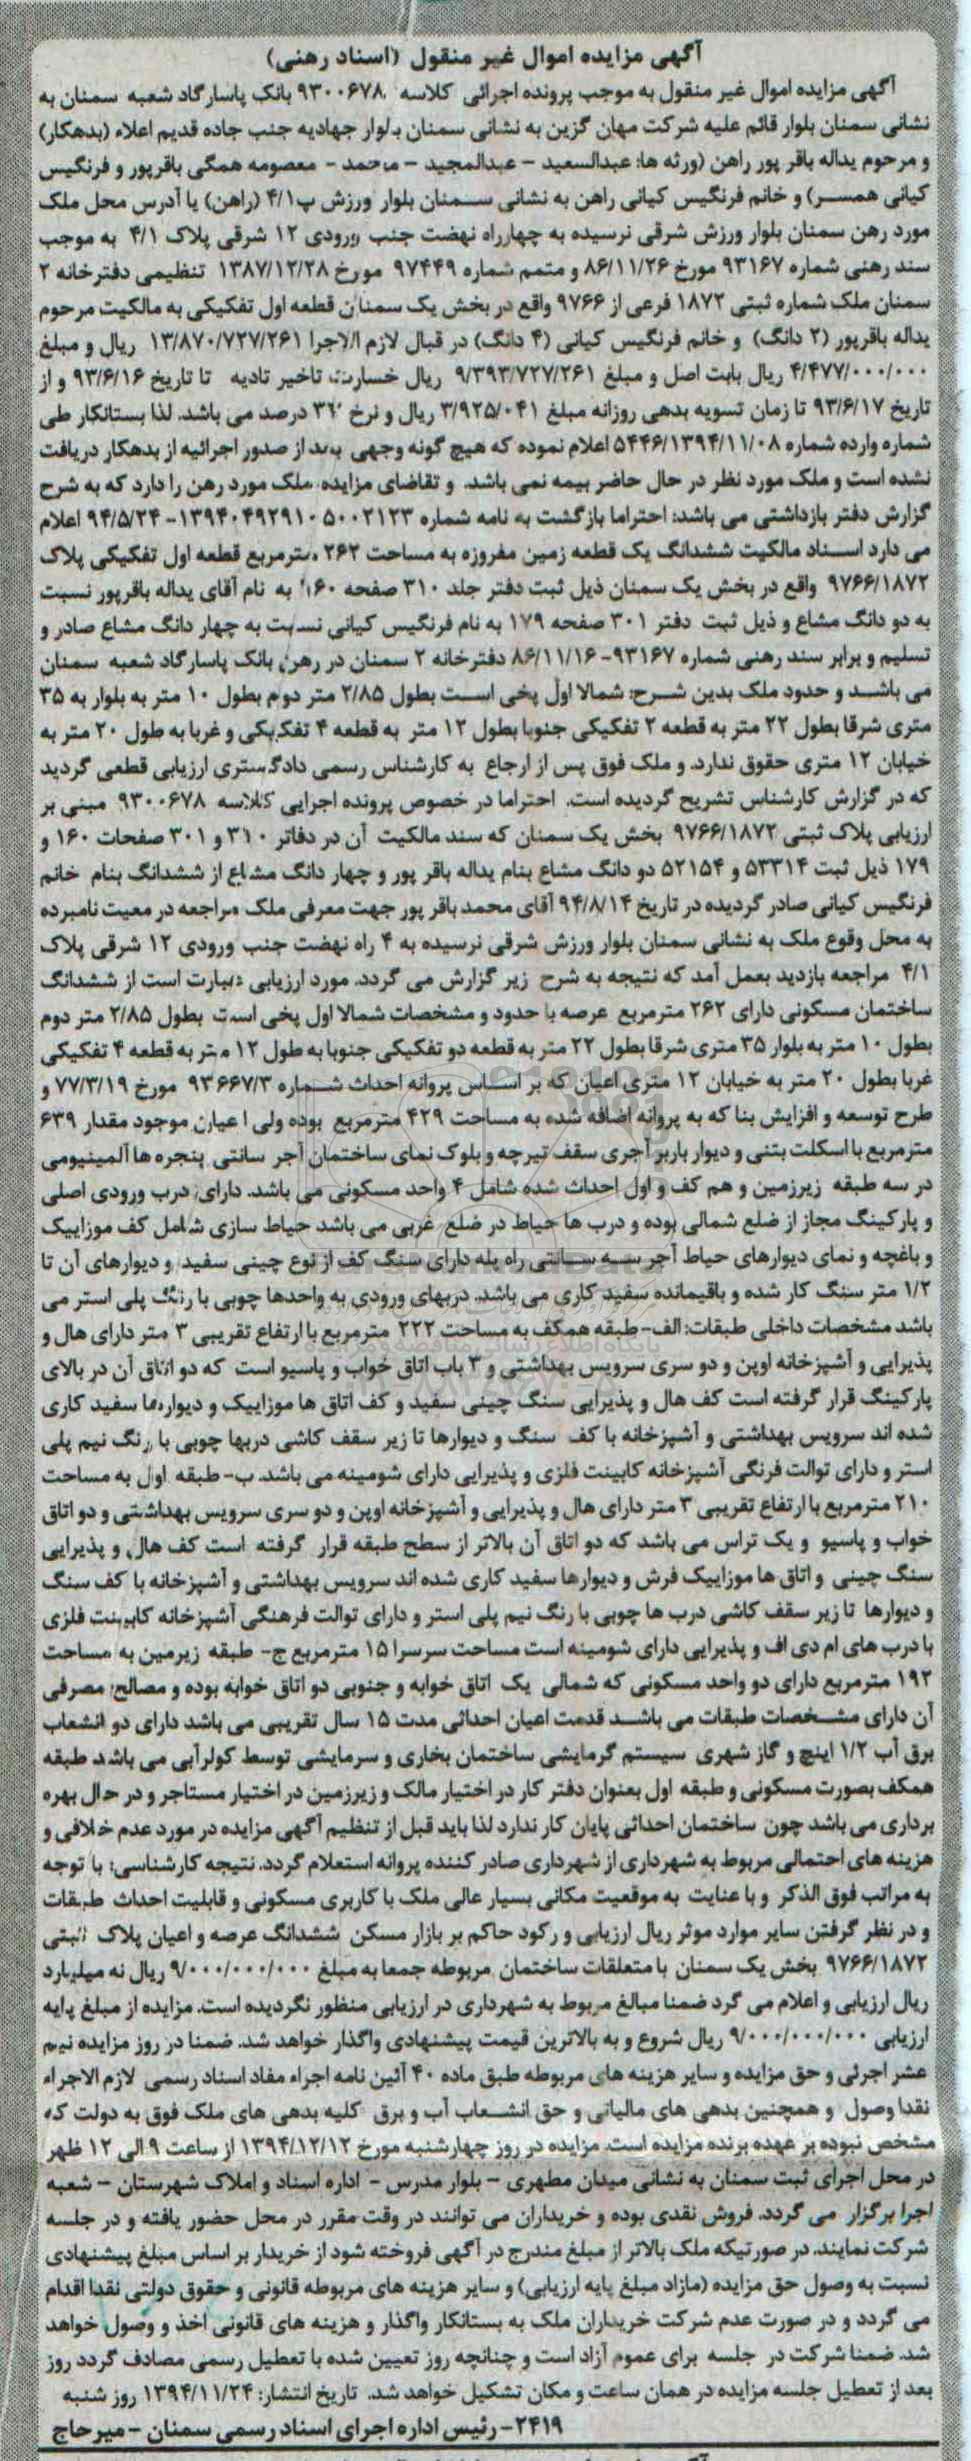 آگهی مزایده اموال غیر منقول (اسناد رهنی)
آگهی مزایده اموال غیر منقول به موجب پرونده اجرائی کلاسه ۹۳۰۰۶۷۸ بانک پاسارگاد شعبه سمنان به
نشانی سمنان بلوار قائم علیه شرکت مهان گزین به نشانی سمنان بلوار جهادیه جنب جاده قدیم اعلاء (بدهکار)
و مرحوم یداله باقر پور راهن (ورثه ها: عبدالسعید - عبدالمجید - محمد - معصومه همگی باقرپور و فرنگیس
کیانی همسر) و خانم فرنگیس کیانی راهن به نشانی سمنان بلوار ورزش پ۴/۱ (راهن) یا آدرس محل ملک
مورد رهن سمنان بلوار ورزش شرقی نرسیده به چهارراه نهضت جنب ورودی ۱۲ شرقی پلاک ۴/۱ به موجب
سند رهنی شماره ۹۳۱۶۷ مورخ ۸۶/۱۱/۲۶ و متمم شماره ۹۷۴۴۹ مورخ ۱۳۸۷/۱۲/۲۸ تنظیمی دفترخانه ۲
سمنان ملک شماره ثبتی ۱۸۷۲ فرعی از ۹۷۶۶ واقع در بخش یک سمنان قطعه اول تفکیکی به مالکیت مرحوم
یداله باقرپور (۲ دانگ) و خانم فرنگیس کیانی (۴ دانگ) در قبال لازم الاجرا ۱۳/۸۷۰/۷۲۷/۲۶۱ ریال و مبلغ
۴/۴۷۷/۰۰۰/۰۰۰ ریال بابت اصل و مبلغ ۹/۳۹۳/۷۲۷/۲۶۱ ریال خسارت تاخیر تادیه تا تاریخ ۹۳/۶/۱۶ و از
تاریخ ۹۳/۶/۱۷ تا زمان تسویه بدهی روزانه مبلغ ۳/۹۲۵/۰۴۱ ریال و نرخ درصد می باشد. لذا بستانکار طی
شماره وارده شماره ۵۴۴۶/۱۳۹۴/۱۱/۰۸ اعلام نموده که هیچ گونه وجهی بعد از صدور اجرائیه از بدهکار دریافت
نشده است و ملک مورد نظر در حال حاضر بیمه نمی باشد. و تقاضای مزایده ملک مورد رهن را دارد که به شرح
گزارش دفتر بازداشتی می باشد: احتراما بازگشت به نامه شماره ۱۳۹۴۰۴۹۲۹۱۰۵۰۰۲۱۲۳- ۹۴/۵/۲۴ اعلام
می دارد اسناد مالکیت ششدانگ یک قطعه زمین مفروزه به مساحت ۲۶۲ مترمربع قطعه اول تفکیکی پلاک
۹۷۶۶/۱۸۷۲ واقع در بخش یک سمنان ذیل ثبت دفتر جلد ۳۱۰ صفحه ۱۶۰ به نام آقای یداله باقرپور نسبت
به دو دانگ مشاع و ذیل ثبت دفتر ۳۰۱ صفحه ۱۷۹ به نام فرنگیس کیانی نسبت به چهار دانگ مشاع صادر و
تسلیم و برابر سند رهنی شماره ۹۳۱۶۷- ۸۶/۱۱/۱۶ دفترخانه ۲ سمنان در رهن بانک پاسارگاد شعبه سمنان
می باشد و حدود ملک بدین شرح: شمالا اول پخی است بطول ۲/۸۵ متر دوم بطول ۱۰ متر به بلوار به ۳۵
متری شرقا بطول ۲۲ متر به قطعه ۲ تفکیکی جنوبا بطول ۱۲ متر به قطعه ۴ تفکیکی و غربا به طول ۲۰ متر به
خیابان ۱۲ متری حقوق ندارد. و ملک فوق پس از ارجاع به کارشناس رسمی دادگستری ارزیابی قطعی گردید
که در گزارش کارشناس تشریح گردیده است. احتراما در خصوص پرونده اجرایی کلاسه ۹۳۰۰۶۷۸ مبنی بر
ارزیابی پلاک ثبتی ۹۷۶۶/۱۸۷۲ بخش یک سمنان که سند مالکیت آن در دفاتر ۳۱۰ و ۳۰۱ صفحات ۱۶۰ و
۱۷۹ ذیل ثبت ۵۳۳۱۴ و ۵۲۱۵۴ دو دانگ مشاع بنام یداله باقر پور و چهار دانگ مشاع از ششدانگ بنام خانم
فرنگیس کیانی صادر گردیده در تاریخ ۹۴/۸/۱۴ آقای محمد باقر پور جهت معرفی ملک مراجعه در معیت نامبرده
به محل وقوع ملک به نشانی سمنان بلوار ورزش شرقی نرسیده به ۴ راه نهضت جنب ورودی ۱۲ شرقی پلاک
۴/۱ مراجعه بازدید بعمل آمد که نتیجه به شرح زیر گزارش می گردد. مورد ارزیابی عبارت است از ششدانگ
ساختمان مسکونی دارای ۲۶۲ مترمربع عرصه با حدود و مشخصات شمالا اول پخی است بطول ۲/۸۵ متر دوم
بطول ۱۰ متر به بلوار ۳۵ متری شرقا بطول ۲۲ متر به قطعه دو تفکیکی جنوبا به طول ۱۲ متر به قطعه ۴ تفکیکی
غربا بطول ۲۰ متر به خیابان ۱۲ متری اعیان که بر اساس پروانه احداث شماره ۹۳۶۶۷/۳ مورخ ۷۷/۳/۱۹ و
طرح توسعه و افزایش بنا که به پروانه اضافه شده به مساحت ۴۲۹ مترمربع بوده ولی اعیان موجود مقدار ۶۳۹
مترمربع با اسکلت بتنی و دیوار باربر آجری سقف تیرچه و بلوک نمای ساختمان آجر سانتی پنجره ها آلمینیومی
در سه طبقه زیرزمین و هم کف و اول احداث شده شامل ۴ واحد مسکونی می باشد. دارای درب ورودی اصلی
و پارکینگ مجاز از ضلع شمالی بوده و درب ها حیاط در ضلع غربی می باشد حیاط سازی شامل کف موزاییک
و باغچه و نمای دیوارهای حیاط آجر سه سانتی راه پله دارای سنگ کف از نوع چینی سفید و دیوارهای آن تا
۱/۲ متر سنگ کار شده و باقیمانده سفید کاری می باشد. دربهای ورودی به واحدها چوبی با رنگ پلی استر می
باشد مشخصات داخلی طبقات: الف- طبقه همکف به مساحت ۲۲۲ مترمربع با ارتفاع تقریبی ۳ متر دارای هال و
پذیرایی و آشپزخانه اوپن و دو سری سرویس بهداشتی و ۳ باب اتاق خواب و پاسیو است که دو اتاق آن در بالای
پارکینگ قرار گرفته است کف هال و پذیرایی سنگ چینی سفید و کف اتاق ها موزاییک و دیوارها سفید کاری
شده اند سرویس بهداشتی و آشپزخانه با کف سنگ و دیوارها تا زیر سقف کاشی دربها چوبی با رنگ نیم پلی
استر و دارای توالت فرنگی آشپزخانه کابینت فلزی و پذیرایی دارای شومینه می باشد. ب- طبقه اول به مساحت
۲۱۰ مترمربع با ارتفاع تقریبی ۳ متر دارای هال و پذیرایی و آشپزخانه اوپن و دو سری سرویس بهداشتی و دو اتاق
خواب و پاسیو و یک تراس می باشد که دو اتاق آن بالاتر از سطح طبقه قرار گرفته است کف هال و پذیرایی
سنگ چینی و اتاق ها موزاییک فرش و دیوارها سفید کاری شده اند سرویس بهداشتی و آشپزخانه با کف سنگ
و دیوارها تا زیر سقف کاشی درب ها چوبی با رنگ نیم پلی استر و دارای توالت فرهنگی آشپزخانه کابینت فلزی
با درب های ام دی اف و پذیرایی دارای شومینه است مساحت سرسرا ۱۵ مترمربع ج- طبقه زیرمین به مساحت
۱۹۲ مترمربع دارای دو واحد مسکونی که شمالی یک اتاق خوابه و جنوبی دو اتاق خوابه بوده و مصالح مصرفی
آن دارای مشخصات طبقات می باشد قدمت اعیان احداثی مدت ۱۵ سال تقریبی می باشد دارای دو انشعاب
برق آب ۱/۲ اینچ و گاز شهری سیستم گرمایشی ساختمان بخاری و سرمایشی توسط کولرآبی می باشد طبقه
همکف بصورت مسکونی و طبقه اول بعنوان دفتر کار در اختیار مالک و زیرزمین در اختیار مستاجر و در حال بهره
برداری می باشد چون ساختمان احداثی پایان کار ندارد لذا باید قبل از تنظیم آگهی مزایده در مورد عدم خلافی و
هزینه های احتمالی مربوط به شهرداری از شهرداری صادر کننده پروانه استعلام گردد. نتیجه کارشناسی: با توجه
به مراتب فوق الذکر و با عنایت به موقعیت مکانی بسیار عالی ملک با کاربری مسکونی و قابلیت احداث طبقات
و در نظر گرفتن سایر موارد موثر ریال ارزیابی و رکود حاکم بر بازار مسکن ششدانگ عرصه و اعیان پلاک ثبتی
۹۷۶۶/۱۸۷۲ بخش یک سمنان با متعلقات ساختمان مربوطه جمعا به مبلغ ۹/۰۰۰/۰۰۰/۰۰۰ ریال نه میلیارد
ریال ارزیابی و اعلام می گرد ضمنا مبالغ مربوط به شهرداری در ارزیابی منظور نگردیده است. مزایده از مبلغ پایه
ارزیابی ۹/۰۰۰/۰۰۰/۰۰۰ ریال شروع و به بالاترین قیمت پیشنهادی واگذار خواهد شد. ضمنا در روز مزایده نیم
عشر اجرئی و حق مزایده و سایر هزینه های مربوطه طبق ماده ۴۰ آئین نامه اجراء مفاد اسناد رسمی لازم الاجراء
نقدا وصول و همچنین بدهی های مالیاتی و حق انشعاب آب و برق کلیه بدهی های ملک فوق به دولت که
مشخص نبوده بر عهده برنده مزایده است. مزایده در روز چهارشنبه مورخ ۱۳۹۴/۱۲/۱۲ از ساعت ۹ الی ۱۲ ظهر
در محل اجرای ثبت سمنان به نشانی میدان مطهری - بلوار مدرس - اداره اسناد و املاک شهرستان - شعبه
اجرا برگزار می گردد. فروش نقدی بوده و خریداران می توانند در وقت مقرر در محل حضور یافته و در جلسه
شرکت نمایند. در صورتیکه ملک بالاتر از مبلغ مندرج در آگهی فروخته شود از خریدار بر اساس مبلغ پیشنهادی
نسبت به وصول حق مزایده (مازاد مبلغ پایه ارزیابی) و سایر هزینه های مربوطه قانونی و حقوق دولتی نقدا اقدام
می گردد و در صورت عدم شرکت خریداران ملک به بستانکار واگذار و هزینه های قانونی اخذ و وصول خواهد
شد. ضمنا شرکت در جلسه برای عموم آزاد است و چنانچه روز تعیین شده با تعطیل رسمی مصادف گردد روز
بعد از تعطیل جلسه مزایده در همان ساعت و مکان تشکیل خواهد شد. تاریخ انتشار: ۱۳۹۴/۱۱/۲۴ روز شنبه
۲۴۱۹- رئیس اداره اجرای اسناد رسمی سمنان - میرحاج